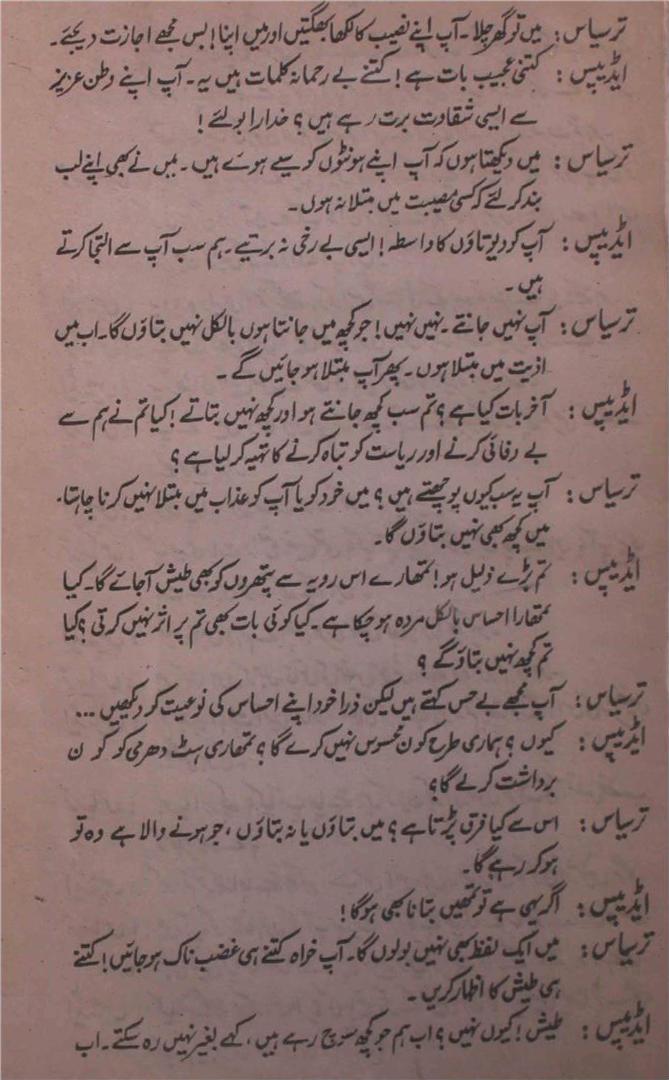 ترسیاس: میں تو گھر چلا۔ آپ اپنے نصیب کا لکھا بھگتیں اور میں اپنا! بس مجھے اجازت دیجئے۔
ایڈیپس: کتنی عجیب بات ہے! کتنے بے رحمانہ کلمات ہیں یہ۔ آپ اپنے وطن عزیز
سے ایسی شقاوت برت رہے ہیں؟ خدارا بولئے!
ترسیاس: میں دیکھتا ہوں کہ آپ اپنے ہونٹوں کو سیے ہوے ہیں۔ میں نے بھی اپنے لب
بند کر لئے کہ کسی مصیبت میں مبتلا نہ ہوں۔
ایڈیپس: آپ کو دیوتاؤں کا واسطہ! ایسی بے رخی نہ برتیے۔ ہم سب آپ سے التجا کرتے
ہیں۔
ترسیاس: آپ نہیں جانتے۔ نہیں نہیں! جو کچھ میں جانتا ہوں بالکل نہیں بتاؤں گا۔ اب میں
اذیت میں مبتلا ہوں۔ پھر آپ مبتلا ہو جائیں گے۔
ایڈیپس: آخر بات کیا ہے؟ تم سب کچھ جانتے ہو اور کچھ نہیں بتاتے! کیا تم نے ہم سے
بے وفائی کرنے اور ریاست کو تباہ کرنے کا تہیہ کر لیا ہے؟
ترسیاس: آپ یہ سب کیوں پوچھتے ہیں؟ میں خود کو یا آپ کو عذاب میں مبتلا نہیں کرنا چاہتا۔
میں کچھ بھی نہیں بتاؤں گا۔
ایڈیپس: تم بڑے ذلیل ہو! تمھارے اس رویہ سے پتھروں کو بھی طیش آجائے گا۔ کیا
تمھارا احساس بالکل مردہ ہو چکا ہے۔ کیا کوئی بات بھی تم پر اثر نہیں کرتی؟ کیا
تم کچھ نہیں بتاؤ گے؟
ترسیاس: آپ مجھے بے حس کہتے ہیں لیکن ذرا خود اپنے احساس کی نوعیت کو دیکھیں ...
ایڈیپس: کیوں؟ ہماری طرح کون محسوس نہیں کرے گا؟ تمھاری ہٹ دھرمی کو کون
برداشت کرلے گا؟
ترسیاس: اس سے کیا فرق پڑتا ہے؟ میں بتاؤں یا نہ بتاؤں، جو ہونے والا ہے وہ تو
ہو کر رہے گا۔
ایڈیپس: اگر یہی ہے تو تمھیں بتانا بھی ہوگا!
ترسیاس: میں ایک لفظ بھی نہیں بولوں گا۔ آپ خواہ کتنے ہی غضب ناک ہو جائیں! کتنے
ہی طیش کا اظہار کریں۔
ایڈیپس: طیش! کیوں نہیں؟ اب ہم جو کچھ سوچ رہے ہیں، کہے بغیر نہیں رہ سکتے۔ اب